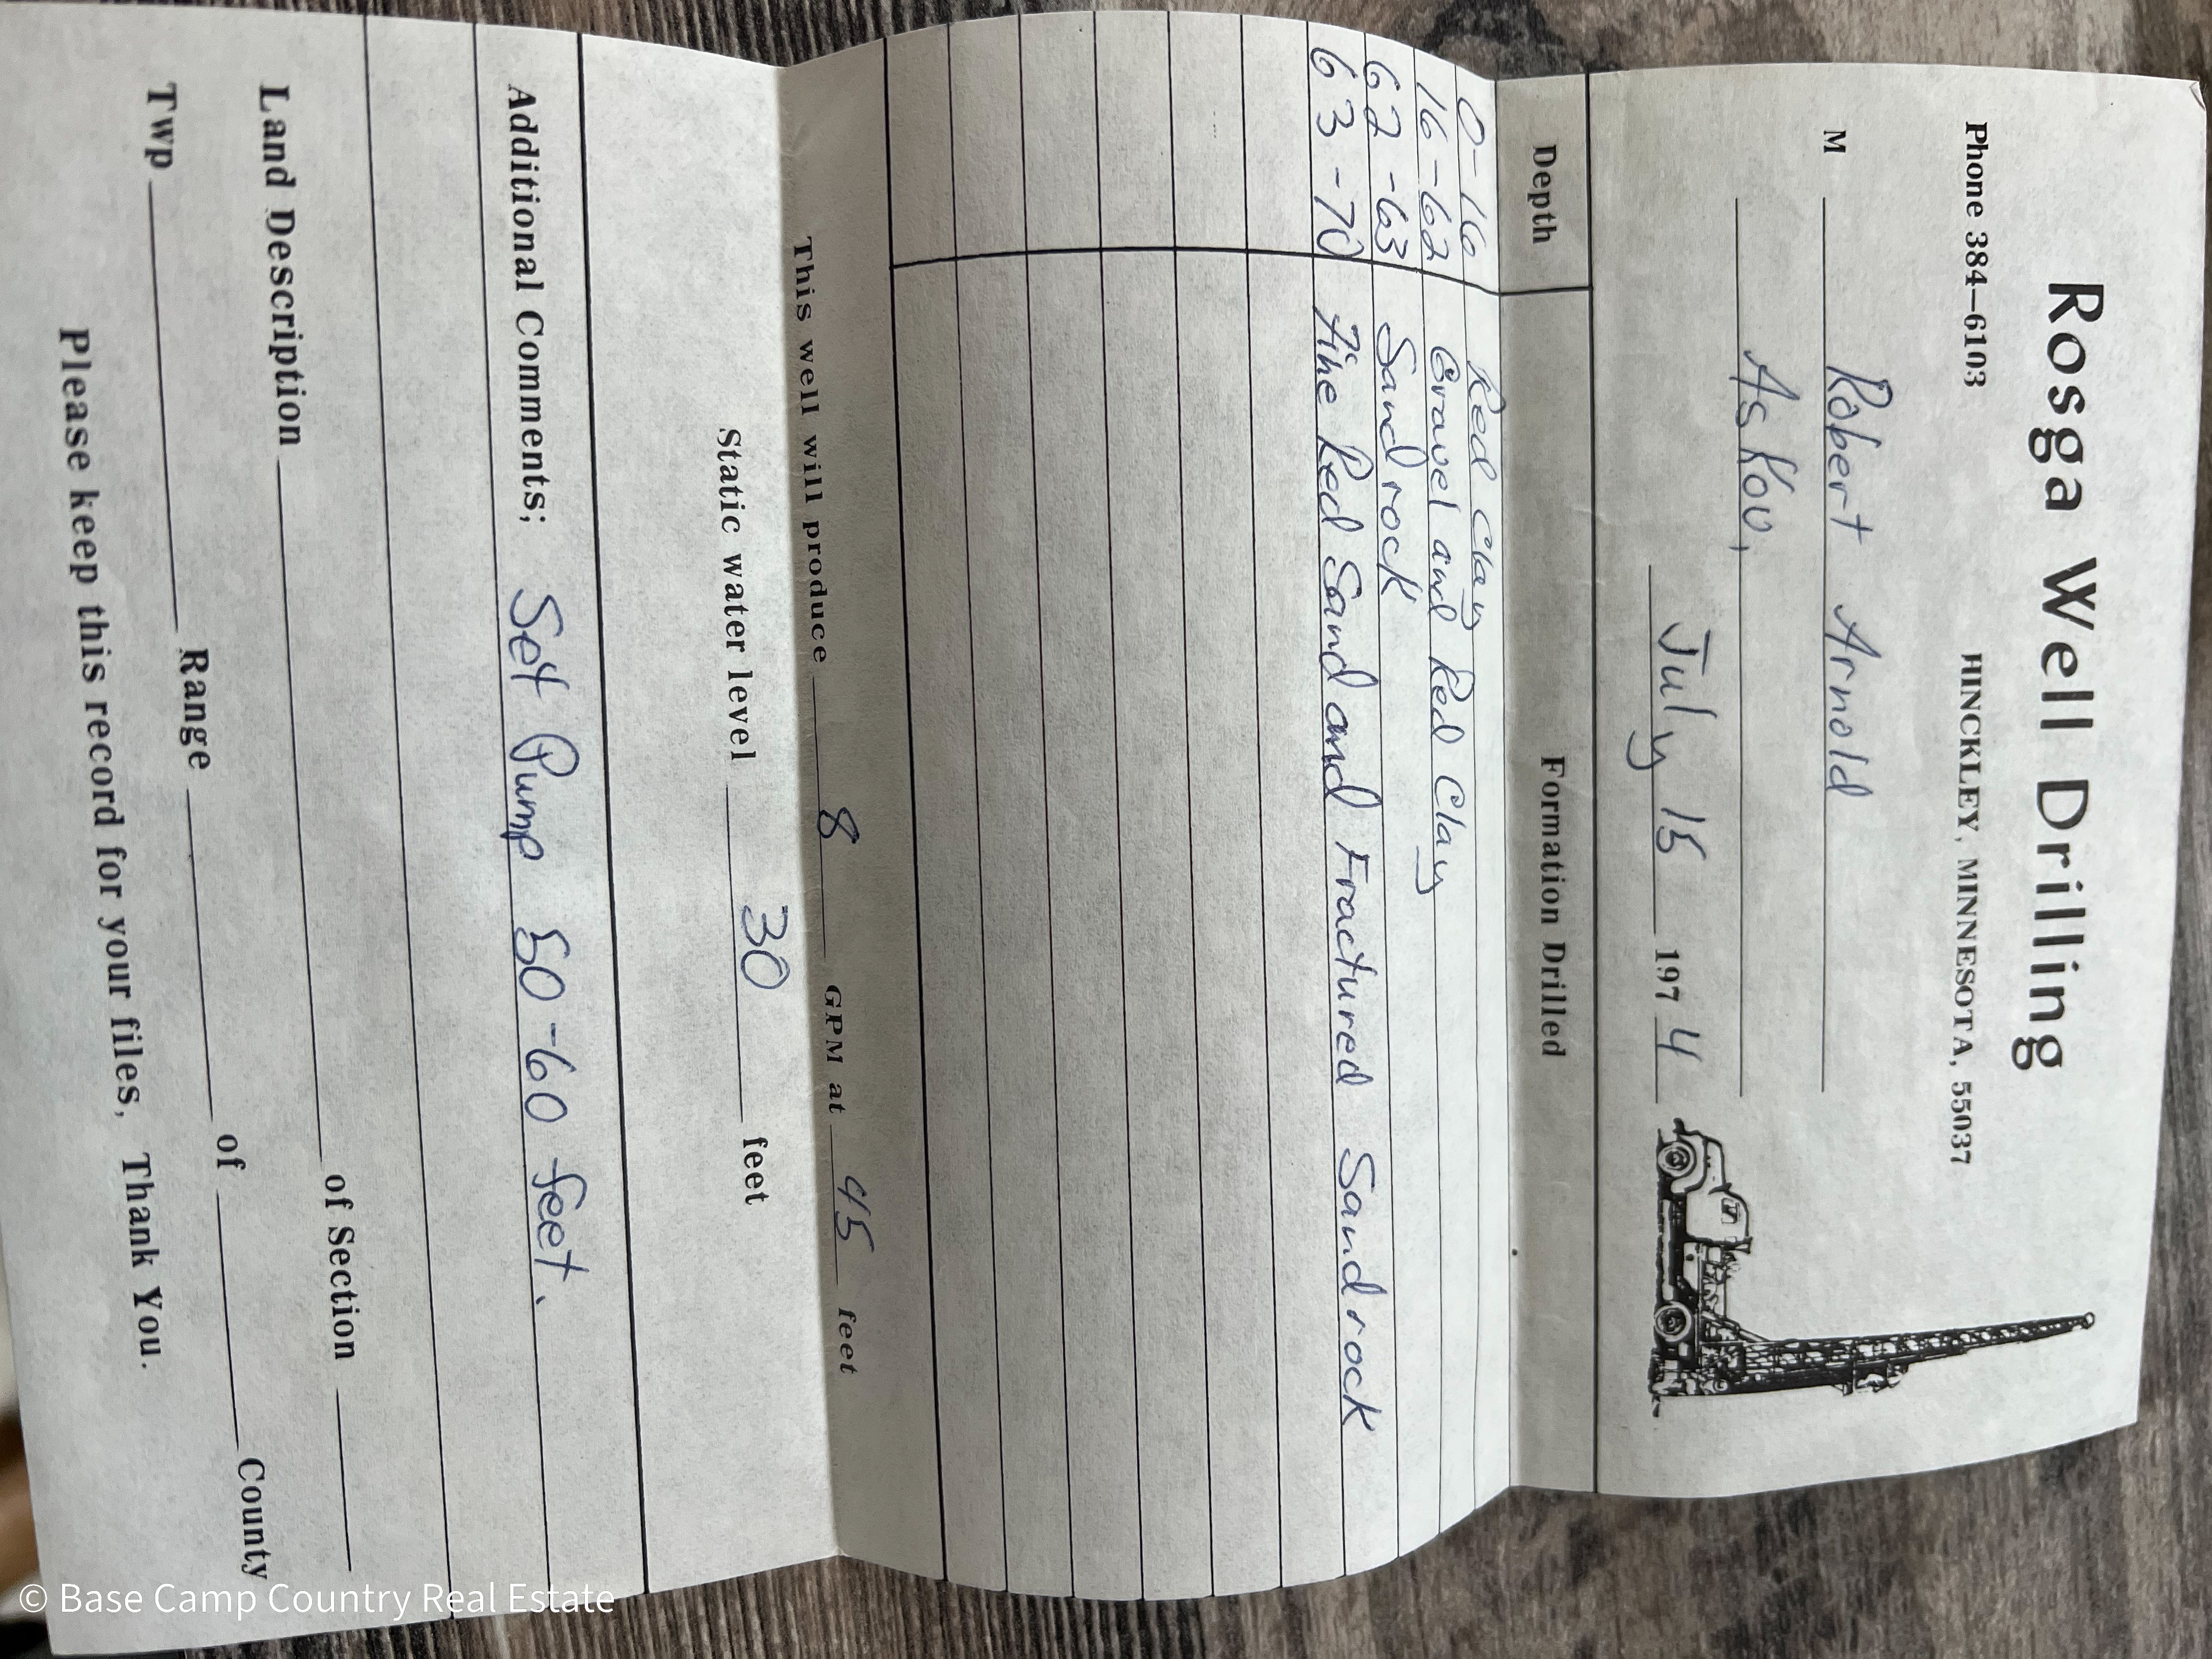 Rosga Well Drilling
Phone 384—6103 HINCKLEY, MINNESOTA, 55037
M Robert Arnold
Askov,
July 15 1974
Depth Formation Drilled
0-16 Red Clay
16-62 Gravel and Red Clay
62-63 Sandrock
63-70 Fine Red Sand and Fractured Sandrock
This well will produce 8 GPM at 45 feet
Static water level 30 feet
Additional Comments; Set Pump 50-60 feet.
Land Description of Section
Twp Range of County
Please keep this record for your files, Thank You.
© Base Camp Country Real Estate